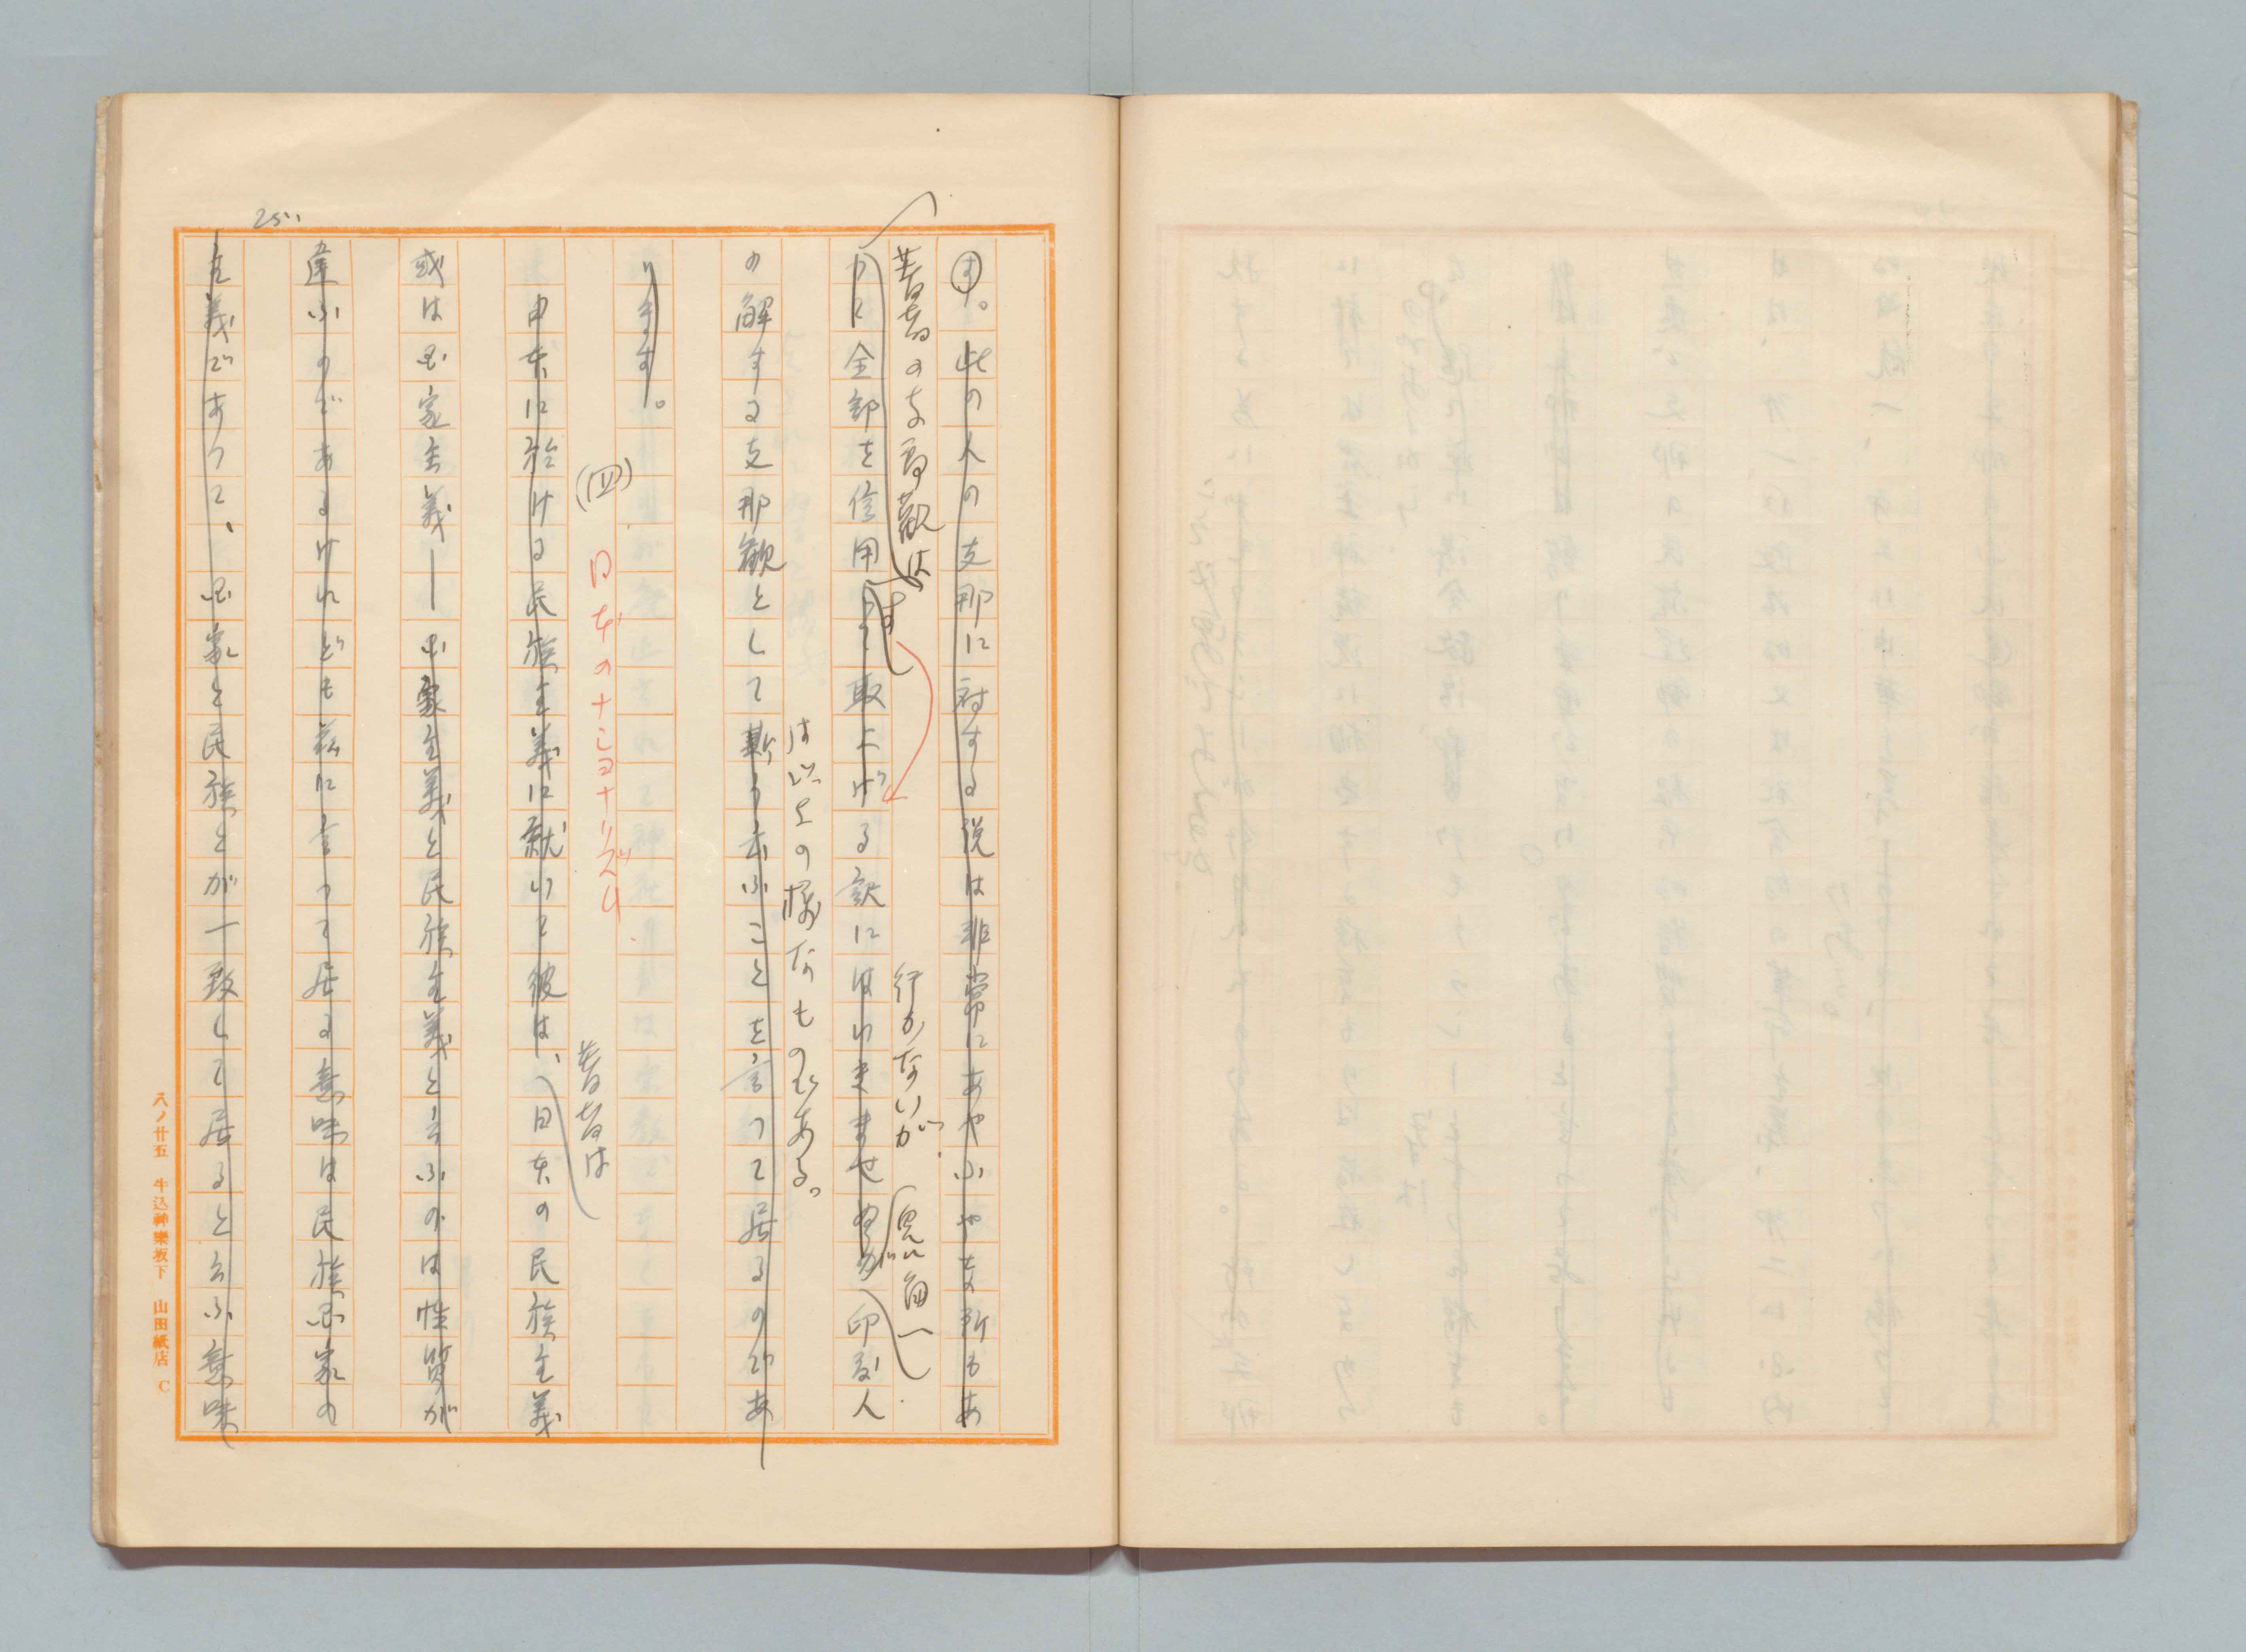 す。此の人の支那に対する説は非常にあやふやな所もあ
著者の支那観は
す
行かないが
思ふ
全部を信用して取上げる訳にはいきませぬが、印度人
は以上の様なものである。
の解する支那観として斯う云ふことを言つて居るのであ
ります。
(四)
日本のナショナリズム
著者は
日本に於ける民族主義に就いて彼は、日本の民族主義
或は国家主義―国家主義と民族主義と云ふのは性質が
違ふのであるけれども茲に言つて居る意味は民族国家の
主義であつて、国家と民族とが一致して居ると云ふ意味
251
八ノ廿五 牛込神樂坂下 山田紙店 C